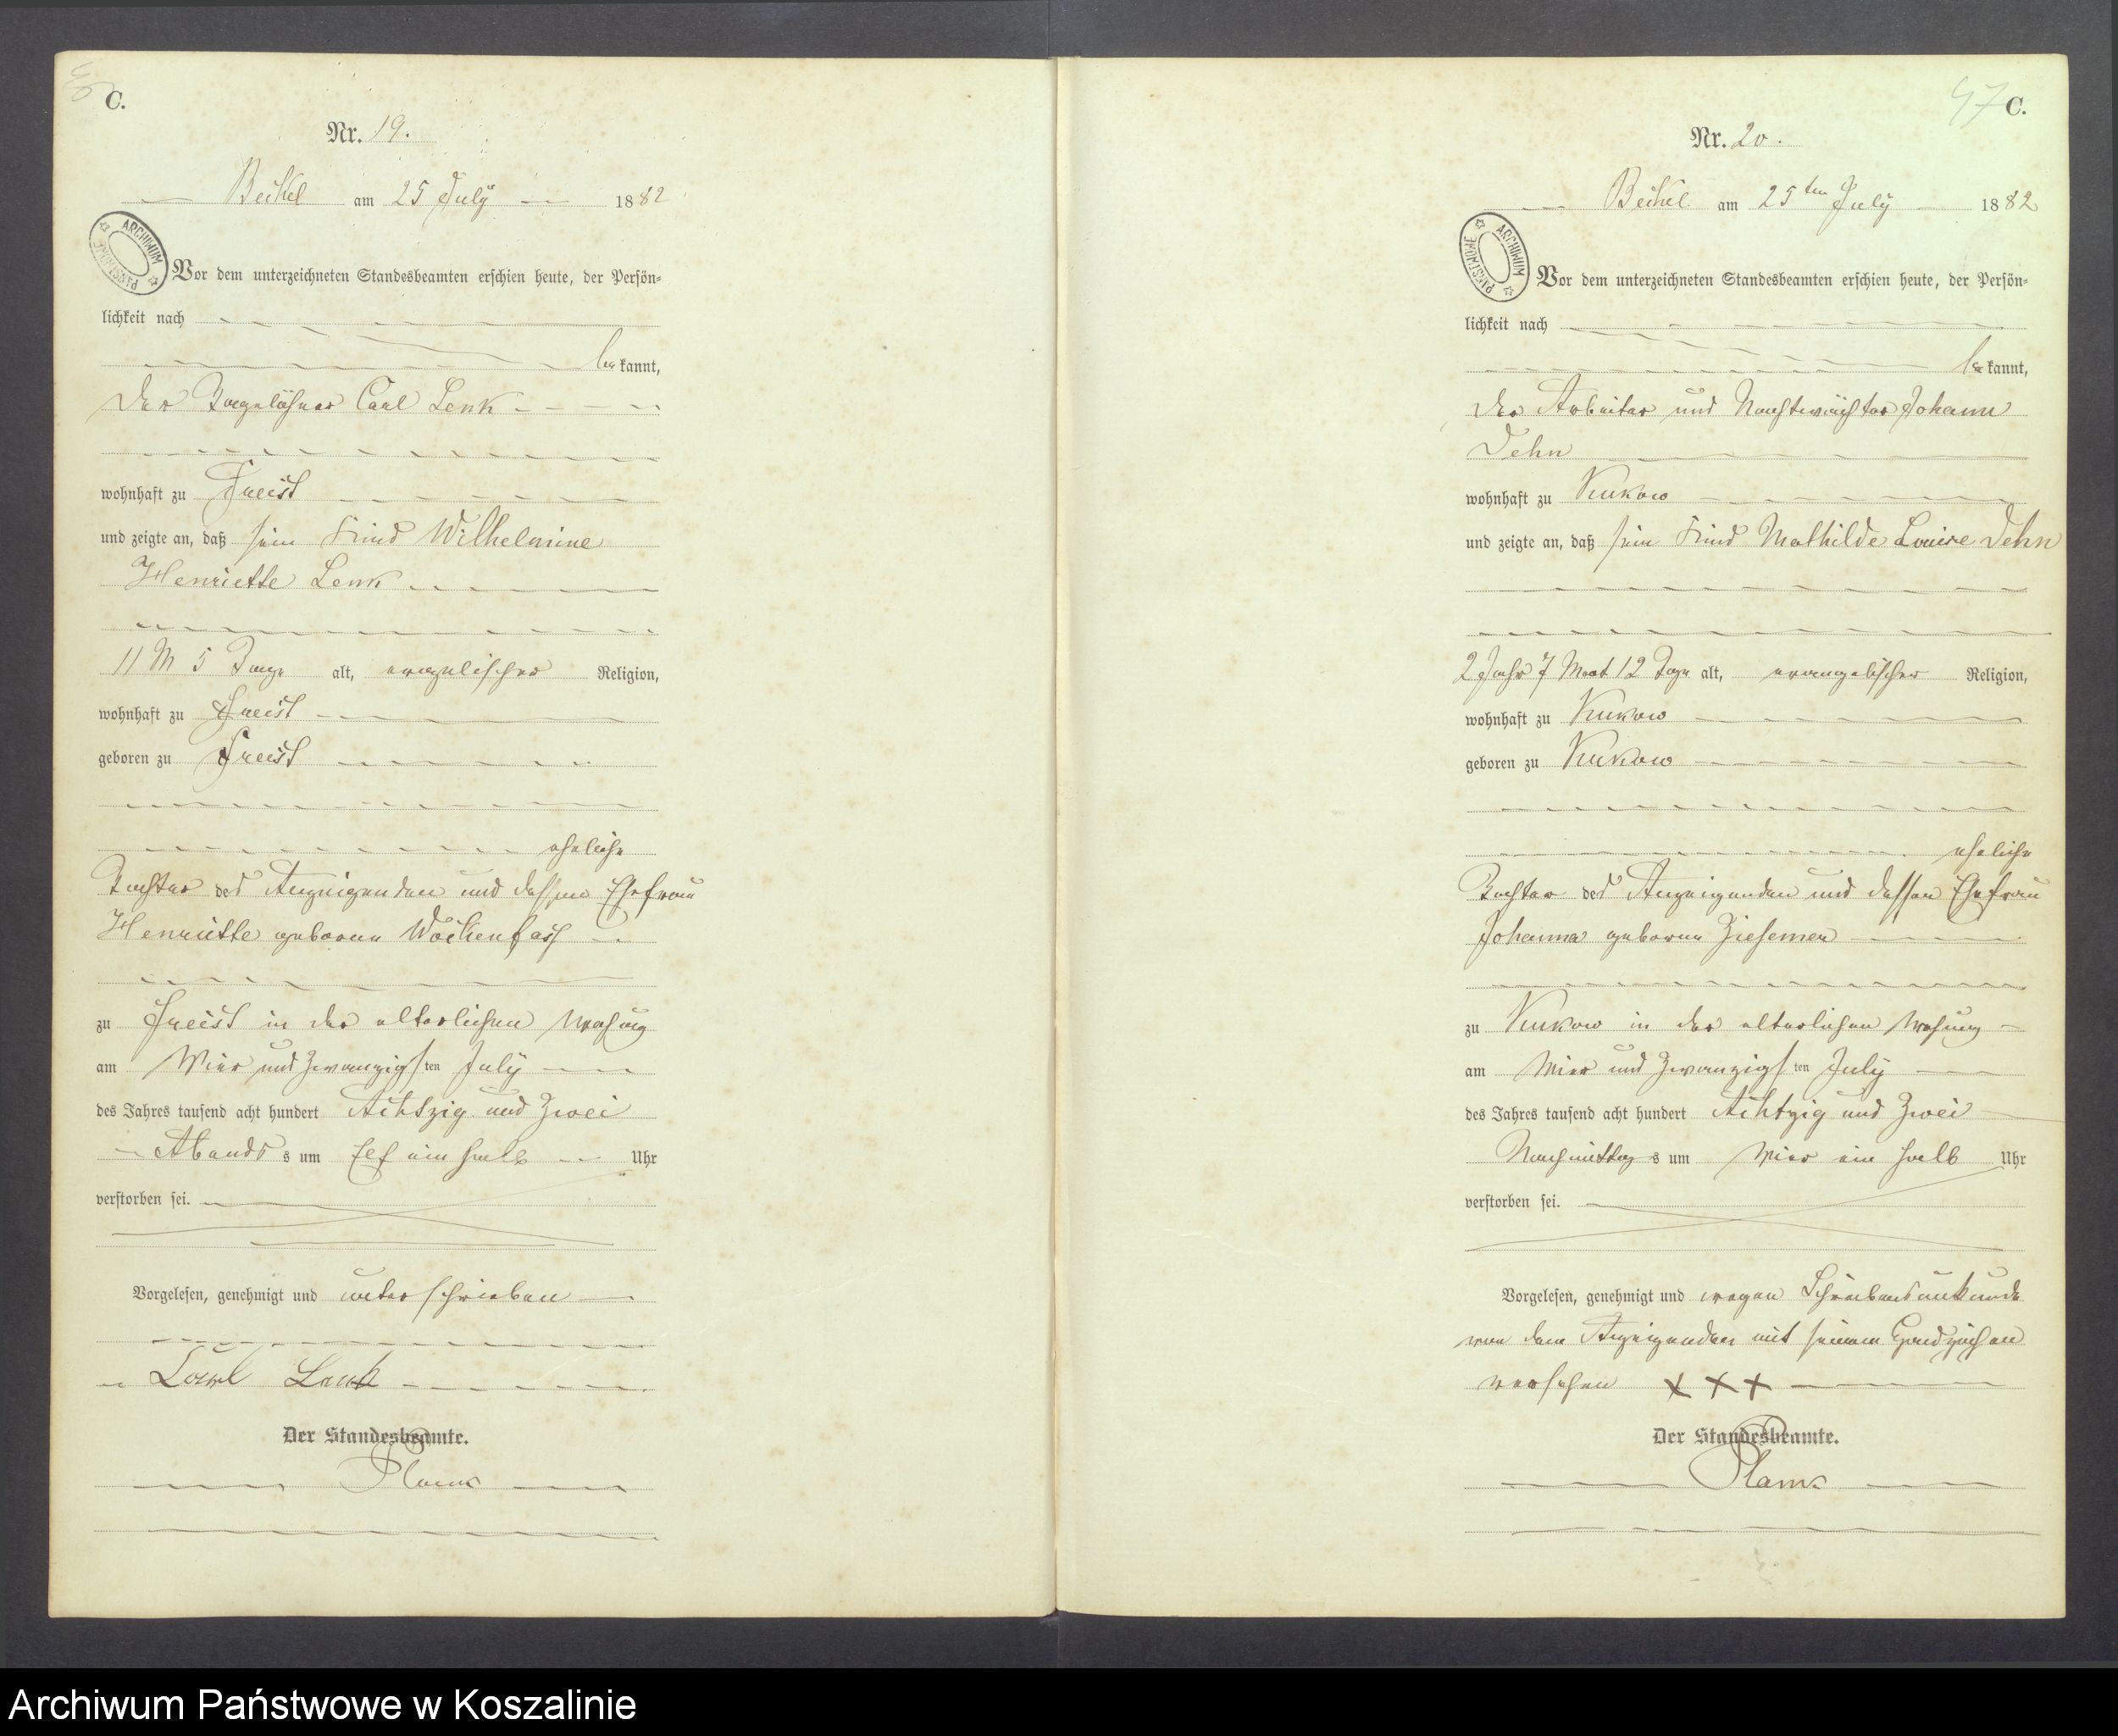 C.
Nr. 19.
Beckel am 25 July 1882
ARCHIWUM PAŃSTWOWE
Vor dem unterzeichneten Standesbeamten erschien heute, der Persön-
lichkeit nach
bekannt,
der Tagelöhner Carl Lenk
wohnhaft zu Freist
und zeigte an, daß sein Kind Wilhelmine
Henriette Lenk
11 M 5 Tage alt, evangelischer Religion,
wohnhaft zu Freist
geboren zu Freist
eheliche
Tochter des Anzeigenden und dessen Ehefrau
Henriette geborene
zu Freist in der elterlichen Wohnung
am Vier und Zwanzigsten July
des Jahres tausend acht hundert Achtzig und Zwei
Abends s um Elf ein halb Uhr
verstorben sei.
Vorgelesen, genehmigt und unterschrieben
Carl Lenk
Der Standesbeamte.
47 C.
Nr. 20.
Beckel am 25ten July 1882
ARCHIWUM PAŃSTWOWE
Vor dem unterzeichneten Standesbeamten erschien heute, der Persön-
lichkeit nach
bekannt,
der Arbeiter und Nachtwächter Johann
Dehn
wohnhaft zu Kukow
und zeigte an, daß sein Kind Mathilde Louise Dehn
2 Jahr 7 Monat 12 Tage alt, evangelischer Religion,
wohnhaft zu Kukow
geboren zu Kukow
eheliche
Tochter des Anzeigenden und dessen Ehefrau
Johanna geborene Ziesemer
zu Kukow in der elterlichen Wohnung
am Vier und Zwanzigsten July
des Jahres tausend acht hundert Achtzig und Zwei
Nachmittag s um Vier ein halb Uhr
verstorben sei.
Vorgelesen, genehmigt und wegen Schreibensunkunde
von dem Anzeigenden mit seinem Handzeichen
versehen XXX
Der Standesbeamte.
Archiwum Państwowe w Koszalinie